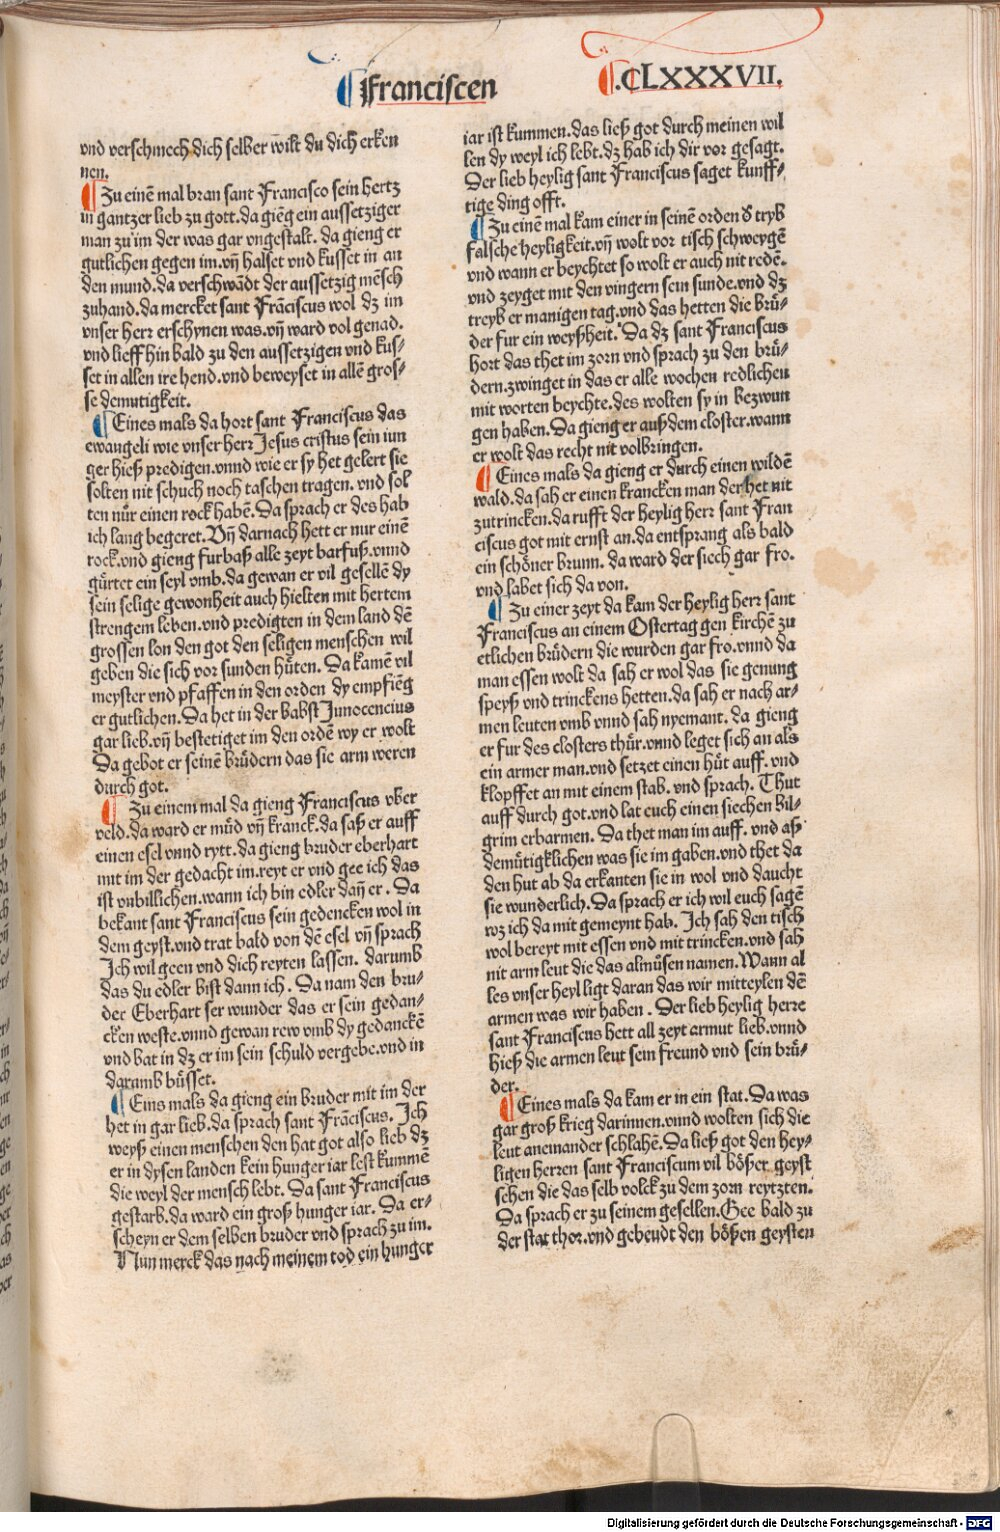 ¶ Franciscen
¶.CLXXXVII.
vnd verschmech dich selber wilt du dich erken
nen.
¶ Zu einē mal bran sant Francisco sein hertz
in gantzer lieb zu gott.da giēg ein aussetziger
man zu im der was gar vngestalt. da gieng er
gutlichen gegen im.vn̄ halset vnd kusset in an
den mund.da verschwādt der aussetzig mēsch
zuhand.da mercket sant Frāciscus wol dz im
vnser herr erschynen was.vn̄ ward vol genad.
vnd lieff hin bald zu den aussetzigen vnd kus⸗
set in allen ire hend.vnd beweyset in allē gros⸗
se demutigkeit.
¶ Eines mals da hort sant Franciscus das
ewangeli wie vnser herr Jesus cristus sein iun
ger hieß predigen.vnnd wie er sy het gelert sie
solten nit schuch noch taschen tragen. vnd sol
ten nur einen rock habē. Da sprach er des hab
ich lang begeret. Vn̄ darnach hett er nur einē
rock.vnd gieng furbaß alle zeyt barfuß.vnnd
gürtet ein seyl vmb.da gewan er vil gesellē dy
sein selige gewonheit auch hielten mit hertem
strengem leben.vnd predigten in dem land dē
grossen lon den got den seligen menschen wil
geben die sich vor sunden hüten. Da kamē vil
meyster vnd pfaffen in den orden dy empfiēg
er gutlichen. Da het in der babst Junocencius
gar lieb.vn̄ bestetiget im den ordē wy er wolt
Da gebot er seinē brüdern das sie arm weren
durch got.
¶ Zu einem mal da gieng Franciscus vber
veld.da ward er müd vn̄ kranck.da saß er auff
einen esel vnnd rytt.da gieng bruder eberhart
mit im der gedacht im.reyt er vnd gee ich das
ist vnbillichen.wann ich bin edler dañ er. Da
bekant sant Franciscus sein gedencken wol in
dem geyst.vnd trat bald von dē esel vn̄ sprach
Ich wil geen vnd dich reyten lassen. darumb
das du edler bist dann ich. Da nam den bru⸗
der Eberhart ser wunder das er sein gedan⸗
cken weste.vnnd gewan rew vmb dy gedanckē
vnd bat in dz er im sein schuld vergebe.vnd in
daramb büsset.
¶ Eins mals da gieng ein bruder mit im der
het in gar lieb.da sprach sant Frāciscus. Ich
weyß einen menschen den hat got also lieb dz
er in dysen landen kein hunger iar lest kummē
die weyl der mensch lebt. Da sant Franciscus
gestarb.da ward ein groß hunger iar. Da er⸗
scheyn er dem selben bruder vnd sprach zu im.
Nun merck das nach meinem tod ein hunger
iar ist kummen.das ließ got durch meinen wil
len dy weyl ich lebt.dz hab ich dir vor gesagt.
Der lieb heylig sant Franciscus saget kunff⸗
tige ding offt.
¶ Zu einē mal kam einer in seinē orden ð tryb
falsche heyligkeit.vn̄ wolt vor tisch schweygē
vnd wann er beychtet so wolt er auch nit redē.
vnd zeyget mit den vingern sein sunde.vnd dz
treyb er manigen tag.vnd das hetten die brü⸗
der fur ein weyßheit. Da dz sant Franciscus
hort das thet im zorn vnd sprach zu den brü⸗
dern.zwinget in das er alle wochen redlichen
mit worten beychte.des wolten sy in bezwun
gen haben. Da gieng er auß dem closter.wann
er wolt das recht nit volbringen.
¶ Eines mals da gieng er durch einen wildē
wald.da sah er einen krancken man der het nit
zutrincken.da rufft der heylig herr sant Fran
ciscus got mit ernst an.da entsprang als bald
ein schöner brunn. da ward der siech gar fro.
vnd labet sich da von.
¶ Zu einer zeyt da kam der heylig herr sant
Franciscus an einem Ostertag gen kirchē zu
etlichen brüdern die wurden gar fro.vnnd da
man essen wolt da sah er wol das sie genung
speyß vnd trinckens hetten.da sah er nach ar⸗
men leuten vmb vnnd sah nyemant. da gieng
er fur des closters thür.vnnd leget sich an als
ein armer man.vnd setzet einen hüt auff.vnd
klopffet an mit einem stab. vnd sprach. Thut
auff durch got.vnd lat euch einen siechen bil⸗
grim erbarmen. Da thet man im auff. vnd aß
demütigklichen was sie im gaben.vnd thet da
den hut ab da erkanten sie in wol vnd daucht
sie wunderlich. Da sprach er ich wil euch sagē
wz ich da mit gemeynt hab. Ich sah den tisch
wol bereyt mit essen vnd mit trincken.vnd sah
nit arm leut die das almüsen namen. Wann al
les vnser heyl ligt daran das wir mitteylen dē
armen was wir haben. Der lieb heylig herre
sant Franciscus hett all zeyt armut lieb.vnnd
hieß die armen leut sein freund vnd sein brü⸗
der.
¶ Eines mals da kam er in ein stat. Da was
gar groß krieg darinnen.vnnd wolten sich die
leut aneinander schlahē. Da ließ got den hey⸗
ligen herren sant Franciscum vil bößer geyst
sehen die das selb volck zu dem zorn reytzten.
Da sprach er zu seinem gesellen. Gee bald zu
der stat thor.vnd gebeudt den bößen geysten
Digitalisierung gefördert durch die Deutsche Forschungsgemeinschaft - DFG